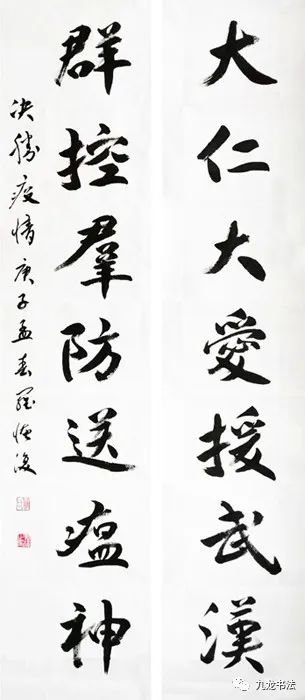 大仁大愛援武漢
群控羣防送瘟神
决勝疫情庚子孟春羅
九龙书法